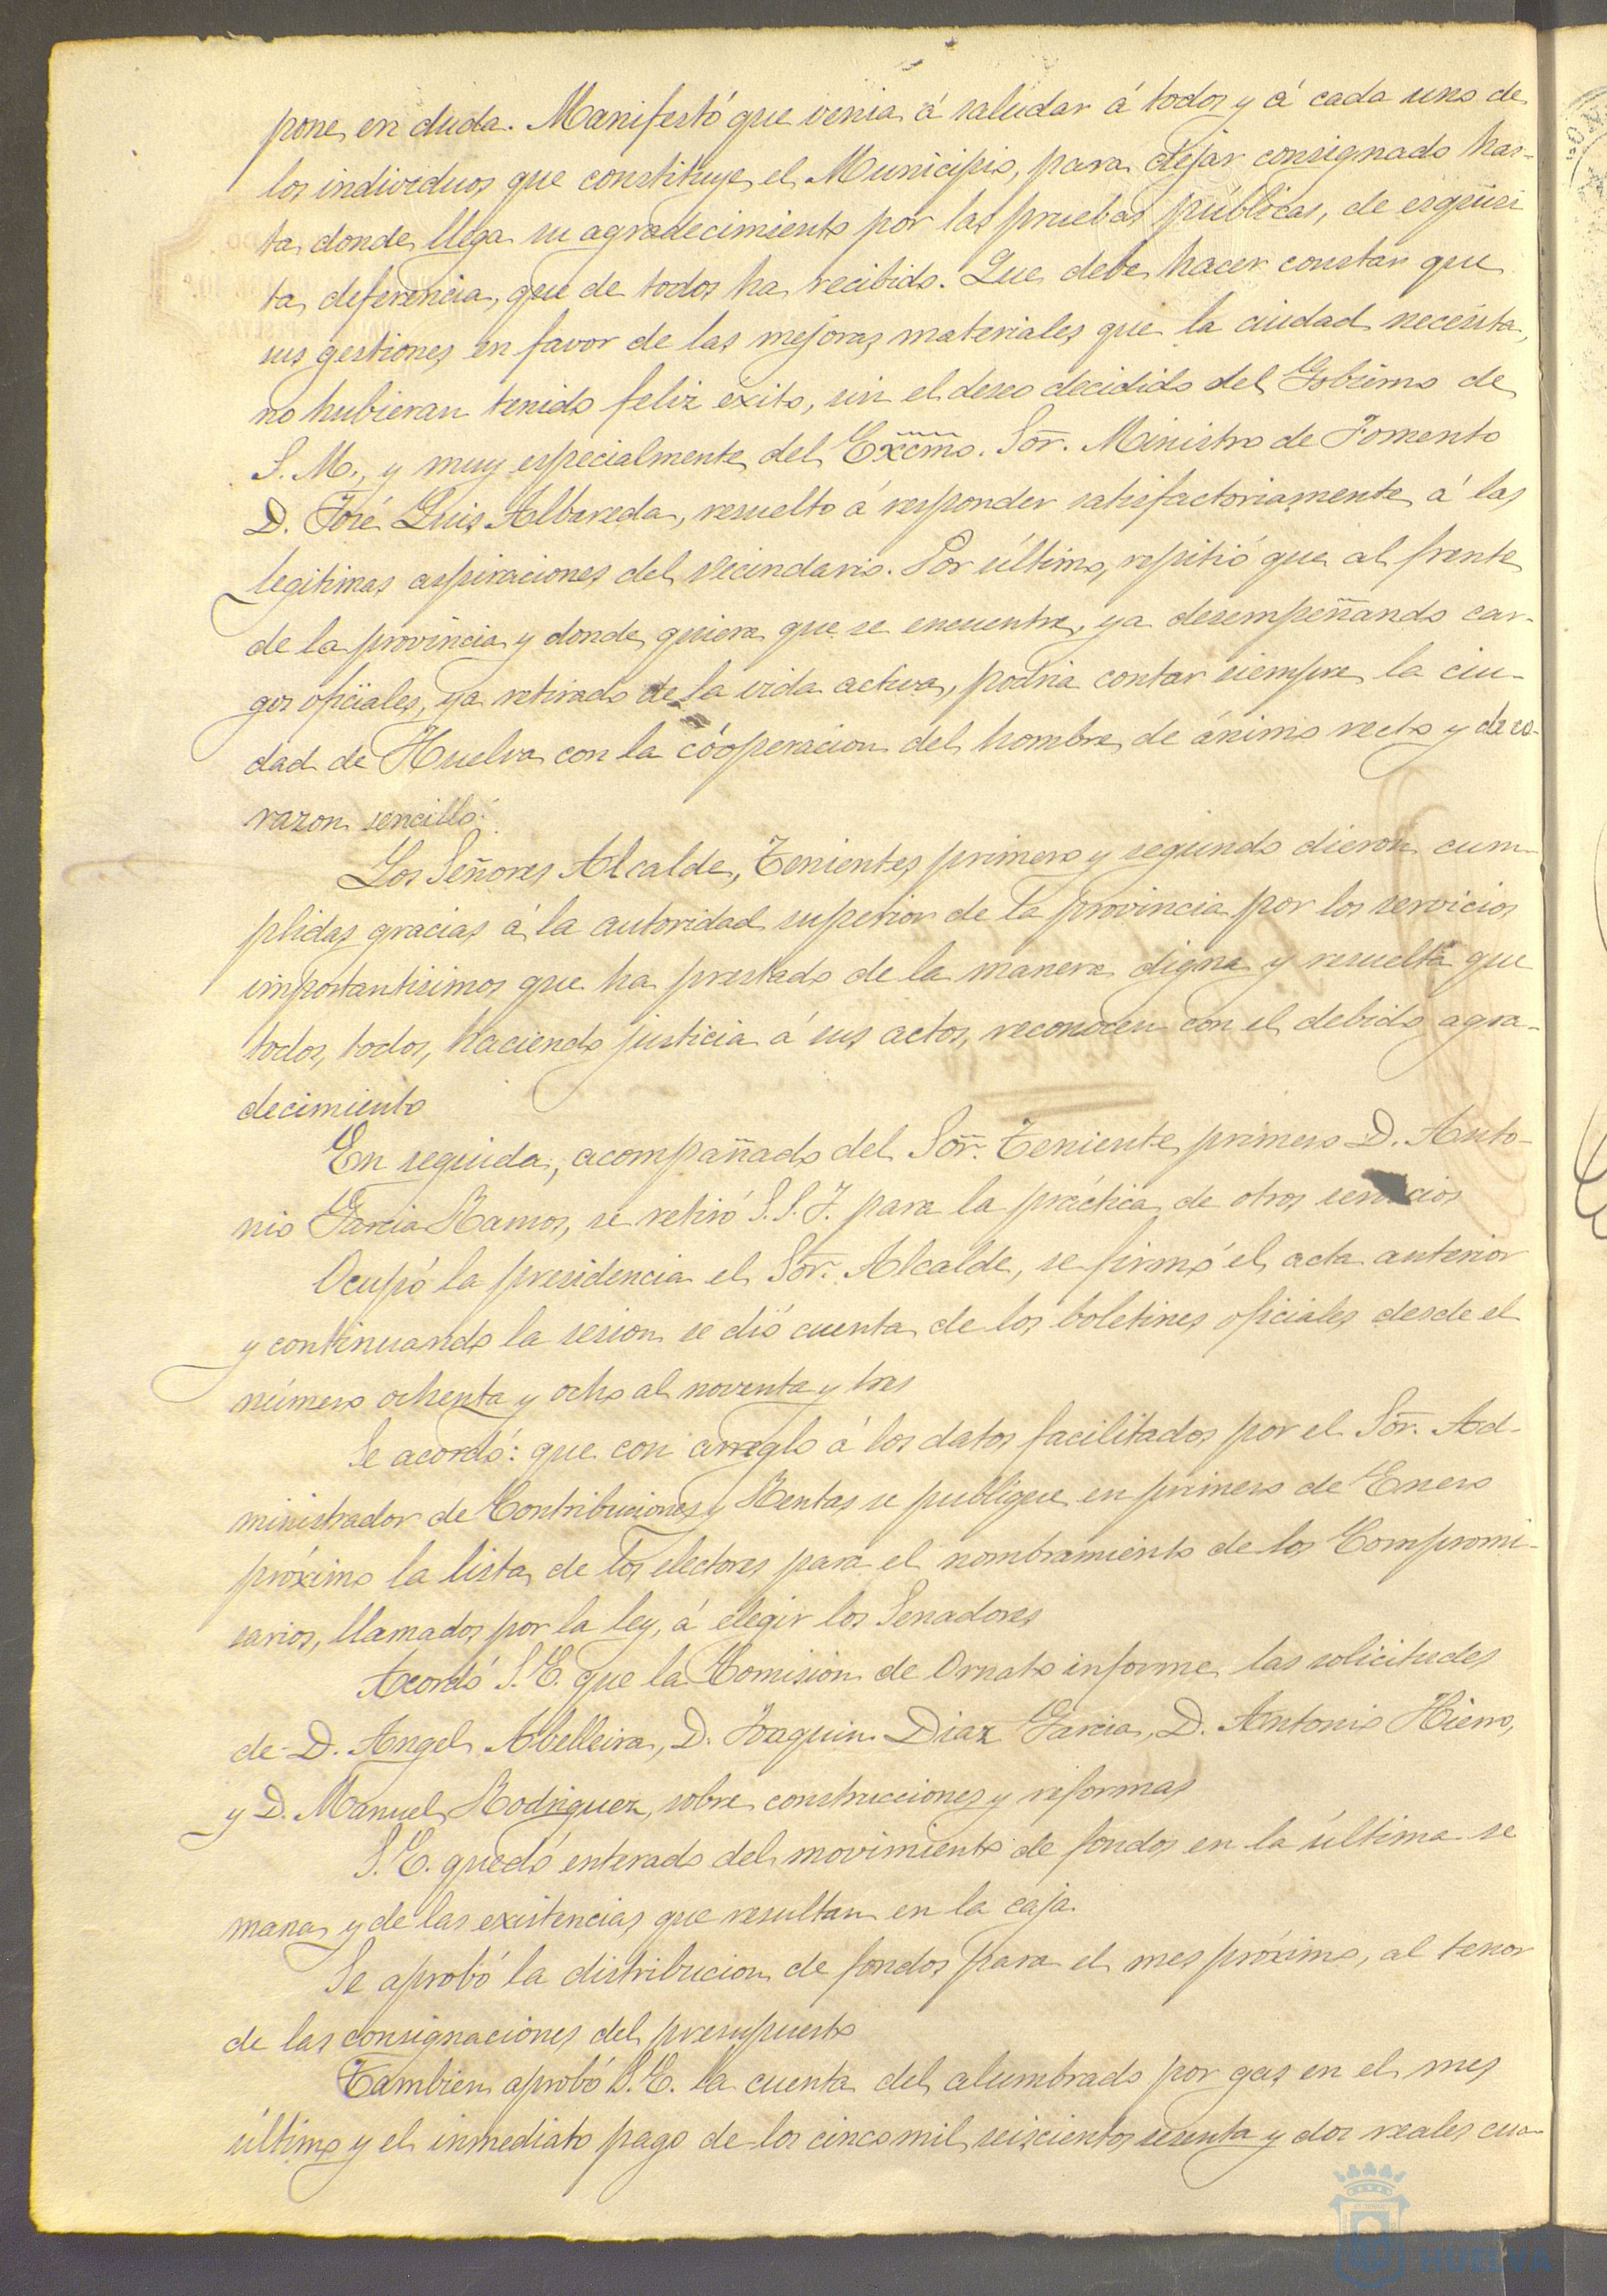 pone en duda. Manifestó que venia á saludar á todos y á cada uno de
los individuos que constituye el Municipio, para dejar consignado has-
ta donde llega su agradecimiento por las pruebas públicas, de esquisi
ta deferencia, que de todos ha recibido. Que debe hacer constar que
sus gestiones en favor de las mejoras materiales que la ciudad necesita,
no hubieran tenido feliz exito, sin el deseo decidido del Gobierno de
S. M., y muy especialmente del Excmo. Sor. Ministro de Fomento
D. José Luis Albareda, resuelto á responder satisfactoriamente á las
legitimas aspiraciones del vecindario. Por último, repitió que al frente
de la provincia y donde quiera que se encuentre, ya desempeñando car-
gos oficiales, ya retirado de la vida activa, podria contar siempre la ciu-
dad de Huelva con la cooperacion del hombre de ánimo recto y de co-
razon sencillo.
Los Señores Alcalde, Tenientes primero y segundo dieron cum-
plidas gracias á la autoridad superior de la provincia por los servicios
importantisimos que ha prestado de la manera digna y resuelta que
todos, todos, haciendo justicia á sus actos, reconocen con el debido agra-
decimiento
En seguida, acompañado del Sor. Teniente primero D. Anto-
nio Garcia Ramos, se retiró S.S.I. para la práctica de otros servicios
Ocupó la presidencia el Sor. Alcalde, se firmó el acta anterior
y continuando la sesion se dió cuenta de los boletines oficiales desde el
número ochenta y ocho al noventa y tres
Se acordó: que con arreglo á los datos facilitados por el Sor. Ad-
ministrador de Contribuciones y Rentas se publique en primero de Enero
próximo la lista de los electores para el nombramiento de los Compromi-
sarios, llamados por la ley, á elegir los Senadores
Acordó S.E. que la Comision de Ornato informe las solicitudes
de D. Angel Abelleira, D. Joaquin Diaz Garcia, D. Antonio Hierro,
y D. Manuel Rodriguez, sobre construcciones y reformas
S.E. quedó enterado del movimiento de fondos en la última se
mana y de las existencias que resultan en la caja.
Se aprobó la distribucion de fondos para el mes próximo, al tenor
de las consignaciones del presupuesto
Tambien aprobó S.E. la cuenta del alumbrado por gas en el mes
último y el inmediato pago de los cinco mil seiscientos sesenta y dos reales cua-
HUELVA